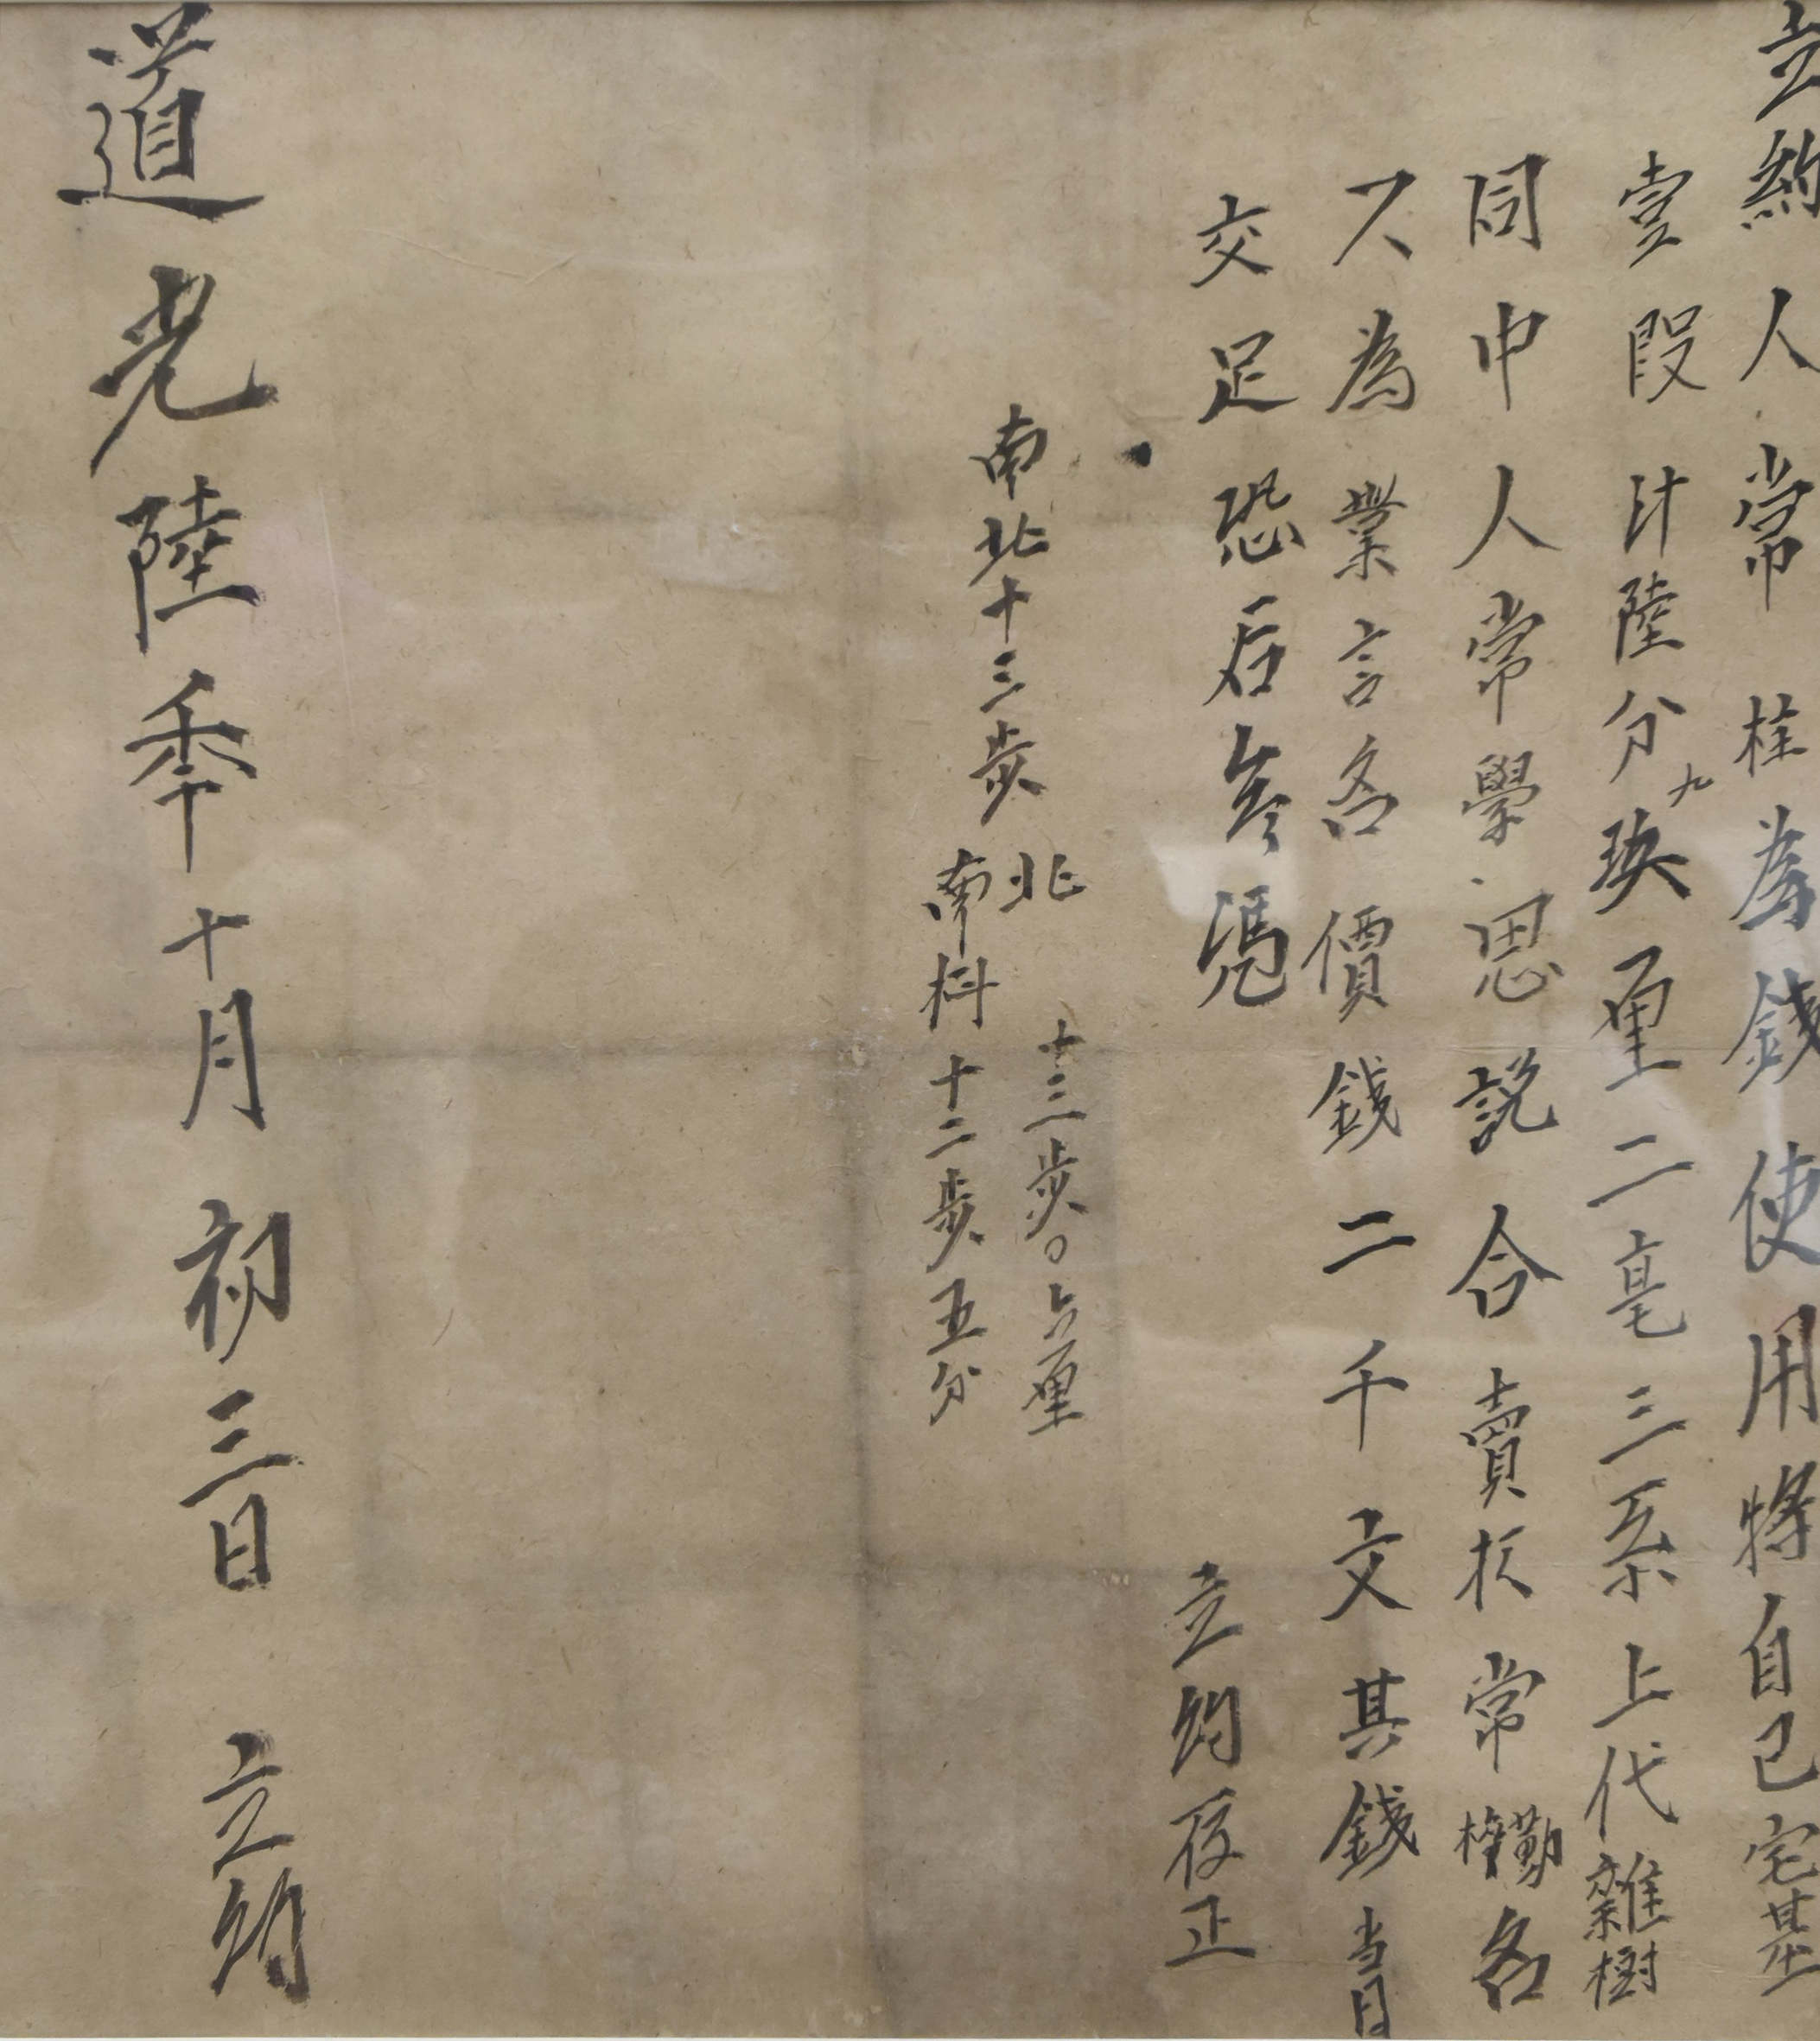 立約人常桂為錢使用將自己宅基
壹段計陸分九厘二毫三系上代雜樹
同中人常學思說合賣於常權勤名
下為業言名價錢二千文其錢当日
交足恐后無憑
立約存正
南北十三步
北十三步〇六厘
南科十二步五分
道光陸年十月初三日立約